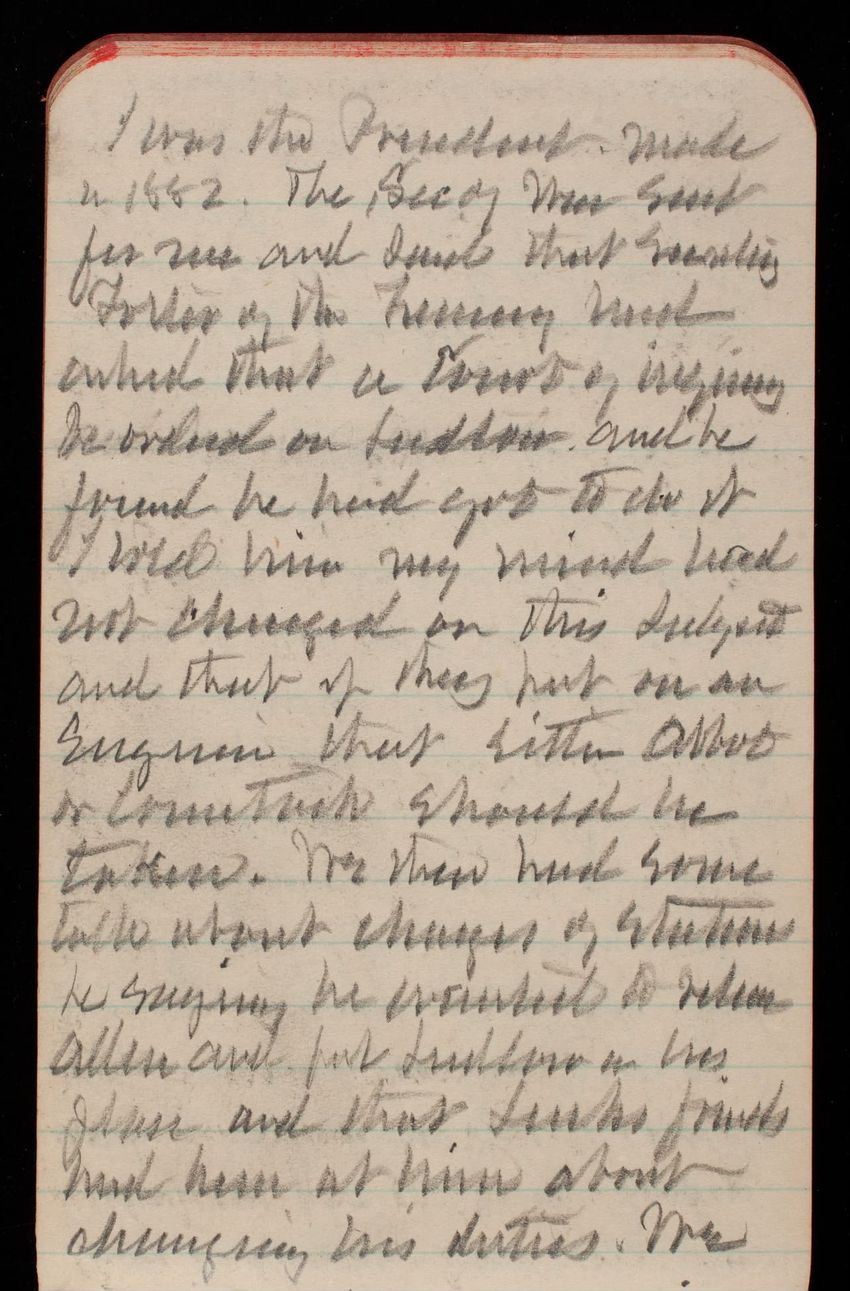 I was the President. made
in 1882. The Sec of War sent
for me and said that Secretary
Foster of the Treasury had
asked that a Court of inquiry
be ordered on Ludlow. and he
found he had got to do it
I told him my mind had
not changed on this subject
and that if they put on an
Engineer that either Abbot
or Comstock should be
taken. We then had some
talk about changes of stations
he saying he wanted to relieve
Allen and put Ludlow in his
place and that friends
had been at him about
changing his duties. We